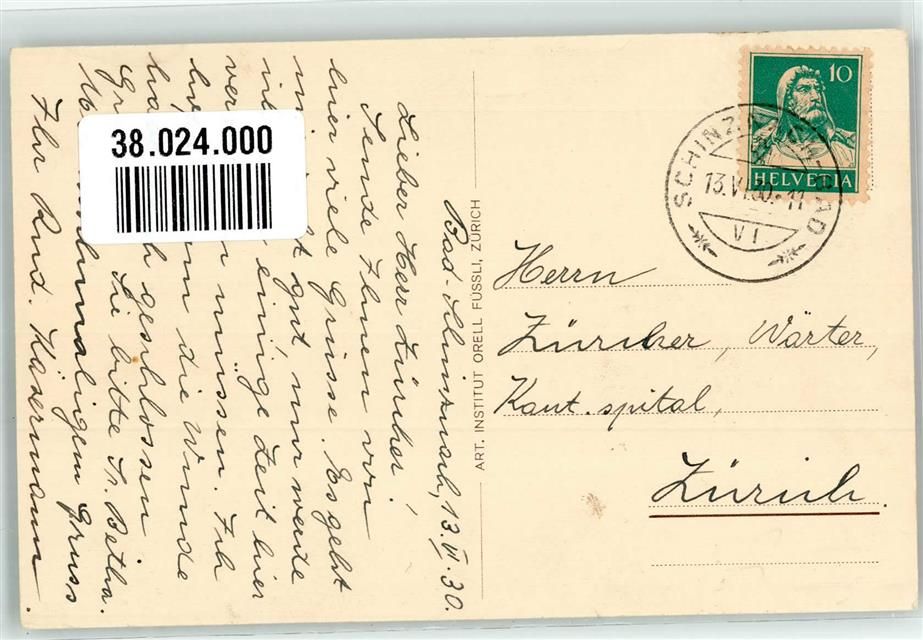 Bad-Schinznach, 13.VI.30.
Lieber Herr Züricher!
Sende Ihnen von
hier viele Grüsse. Es geht
gut, nur werde
einige Zeit hier
müssen. Ich
die Wunde
geschlossen
Sie bitte Sr. Betha.
maligem Gruss
Ihr Rud. Käsermann.
38.024.000
ART. INSTITUT ORELL FÜSSLI, ZÜRICH
10
HELVETIA
SCHINZNACH-BAD
13.VI.30.-11
VI
Herrn
Züricher, Wärter,
Kant. spital,
Zürich.